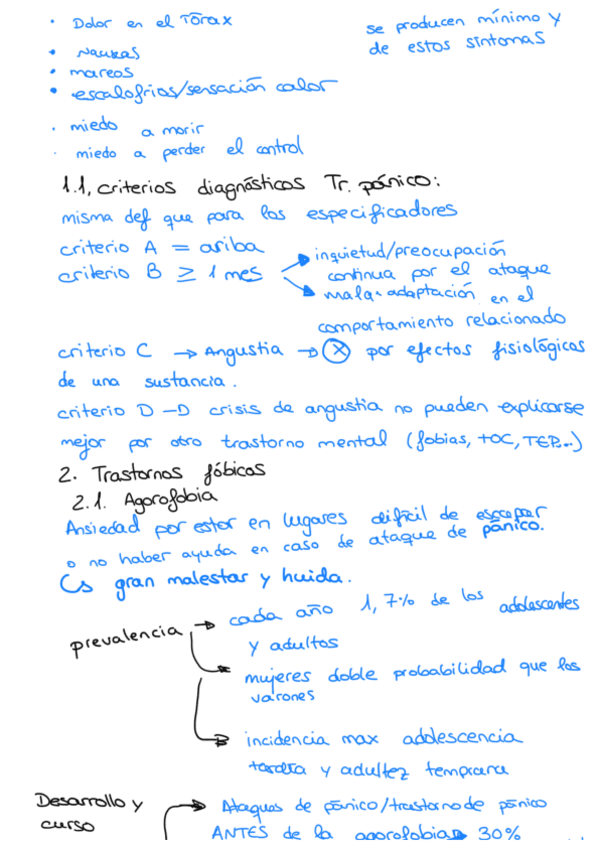 • Dolor en el Tórax
• Nauseas
• mareos
• escalofrios/sensación calor
• miedo a morir
• miedo a perder el control
se producen mínimo y
de estos síntomas
1.1, criterios diagnósticos Tr. pánico:
misma def que para los especificadores
criterio A = ariba
criterio B ≥ 1 mes
inquietud/preocupación
continua por el ataque
mala adaptación en el
comportamiento relacionado
criterio C → Angustia → ⓧ por efectos fisiológicos
de una sustancia.
criterio D → crisis de angustia no pueden explicarse
mejor por otro trastorno mental (fobias, TOC, TEP...)
2. Trastornos fóbicos
2.1. Agorofobia
Ansiedad por estar en lugares difícil de escapar
o no haber ayuda en caso de ataque de pánico.
↳ gran malestar y huida.
prevalencia → cada año 1,7% de los adolescentes
y adultos
mujeres doble probabilidad que los
varones
incidencia max adolescencia
tardía y adultez temprana
Desarrollo y
curso
→ Ataques de pánico/trastorno de pánico
ANTES de la agorofobia → 30%